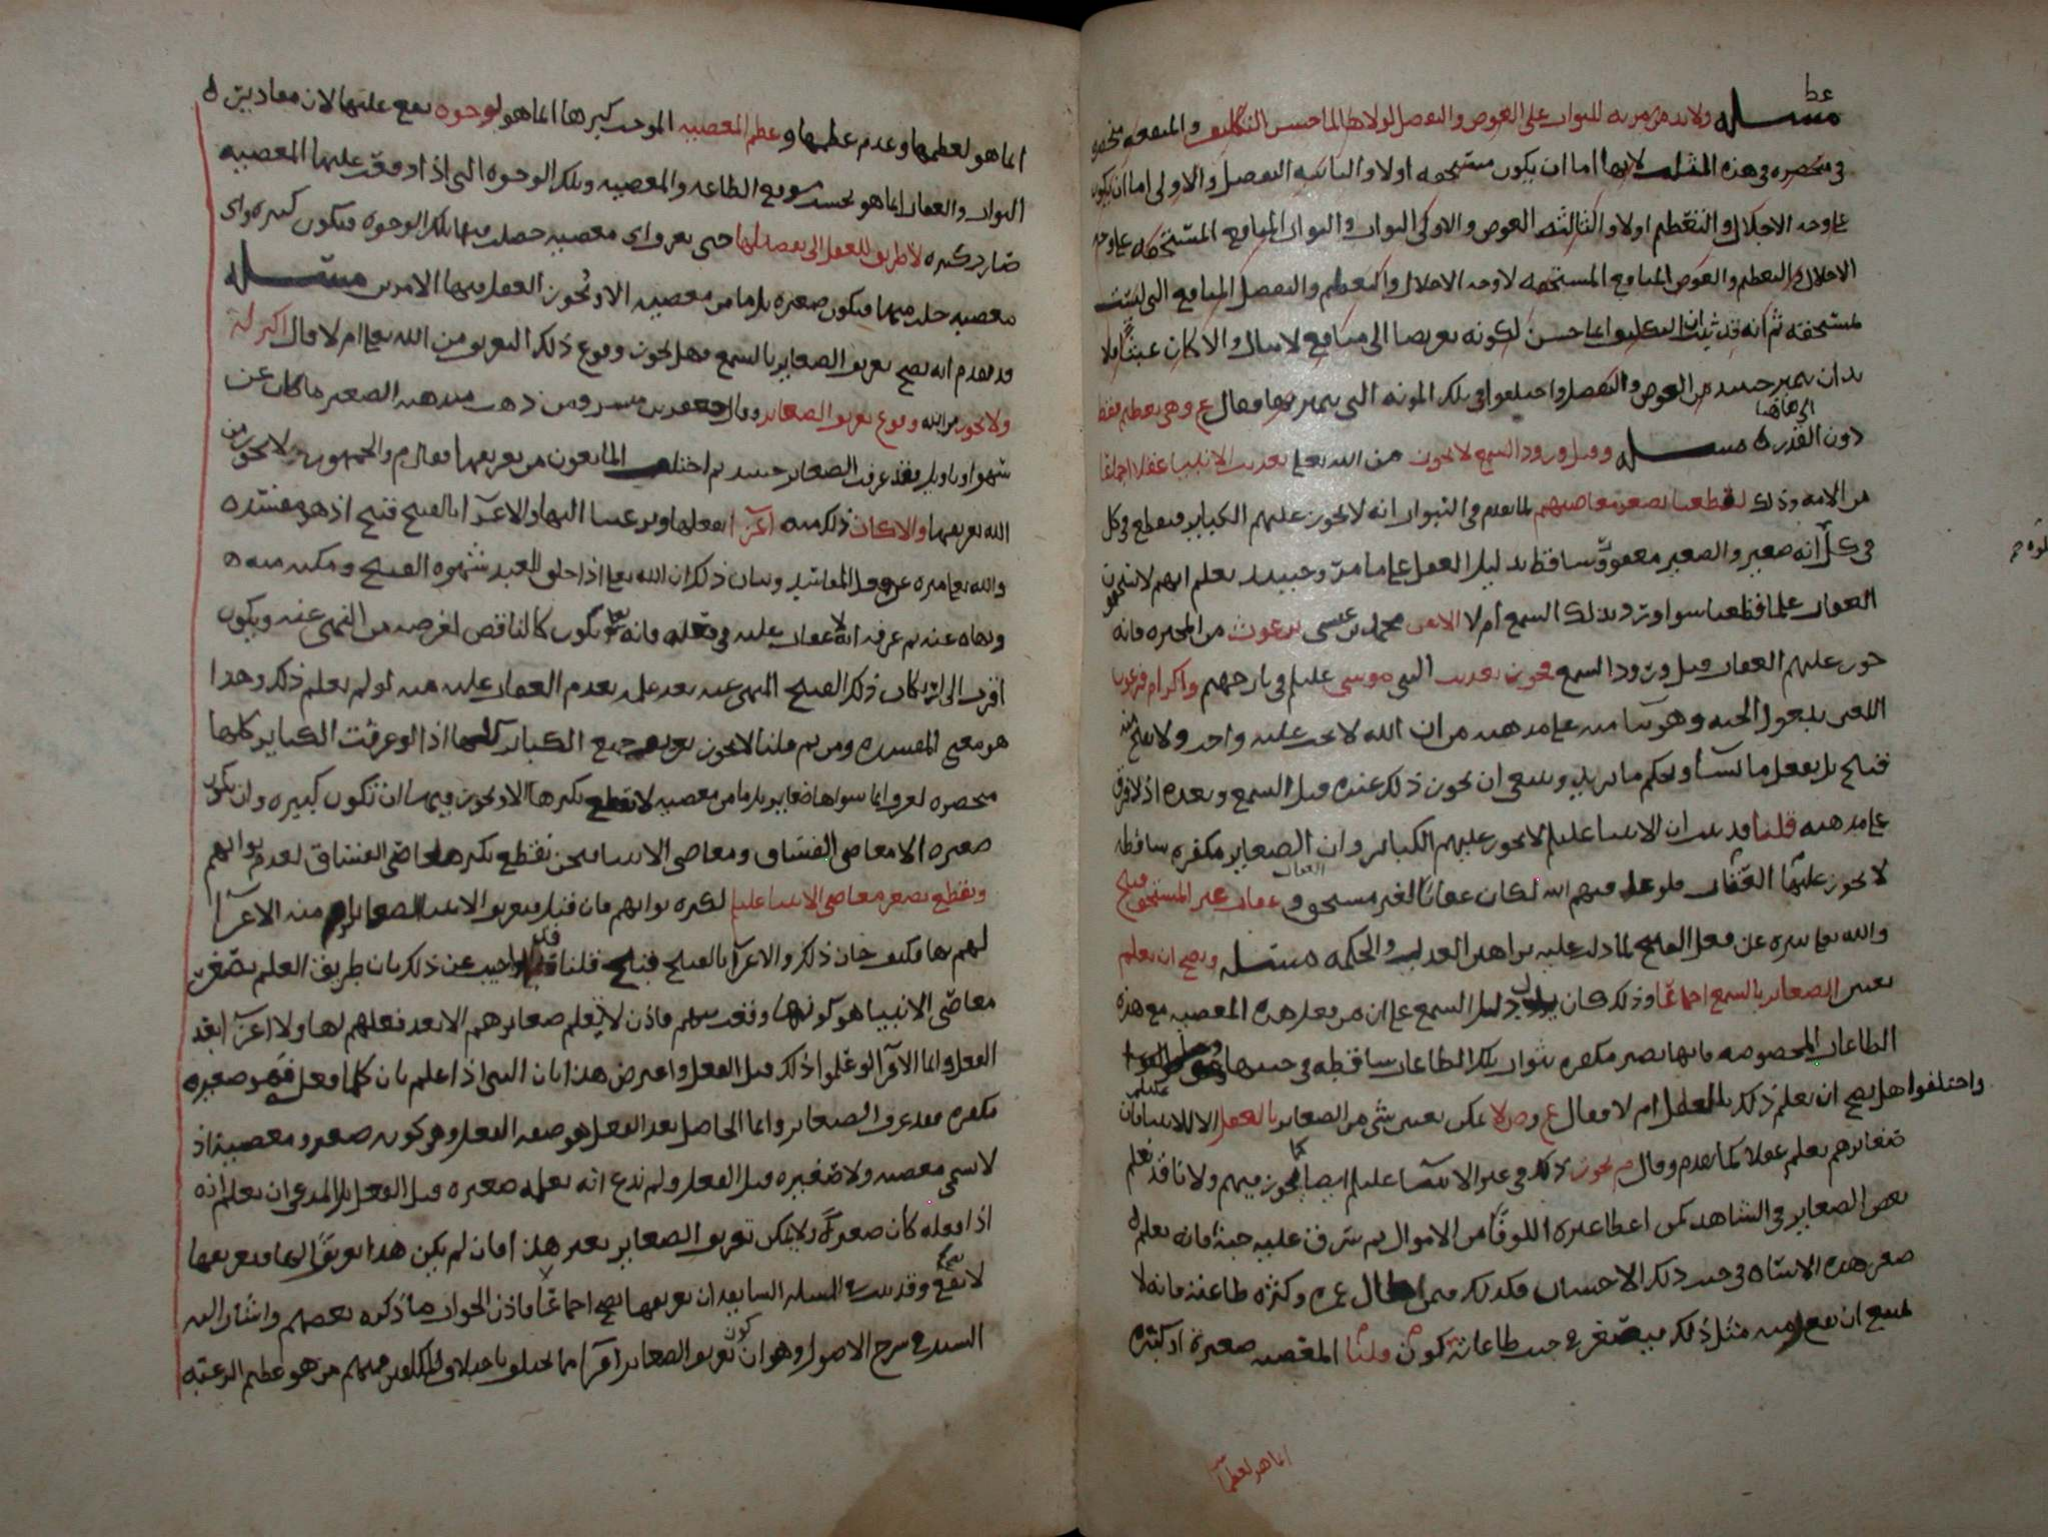 مسئله ولا بد من مزيه للثواب على العوض والتفضل لولاها لما حسن التكليف والمنفعه
منحصره في هذه الثلث لانها اما ان يكون مستحقه اولا والثانيه التفضل والاولى اما ان يكون
على وجه الاجلال والتعظيم اولا والثالثه العوض والاولى الثواب والثواب المنافع المستحقه على وجه
الاجلال والتعظيم والعوض المنافع المستحقه لا وجه الاجلال والتعظيم والتفضل المنافع التي ليست
مستحقه ثم انه قد ثبت ان التكليف انما حسن لكونه تعريضا الى منافع لا تنال والا كان عبثا فلا
بد ان يتميز حينئذ عن العوض والتفضل واختلفوا في تلك المزيه التي يتميز بها فقال ع وهي بعظم فقط
دون القدر ه مسئله وقبل ورود السمع لا يجوز من الله تعلى تعذيب الانبيا عقلا اجماعا
من الامه وذلك لقطعنا بصغر معاصيهم لما تقدم في النبوات انه لا يجوز عليهم الكباير فنقطع في كل
في كل انه صغير والصغير معفو ساقط بدليل العقل على ما مر وحينئذ نعلم انهم لا يستحقون
العقاب علما قطعيا سوا ورد بذلك السمع ام لا محمد بن عيسى برغوث من المجبره فانه
جوز عليهم العقاب قبل ورود السمع فجوز تعذيب النبي موسى عليلم في نار جهنم واكرام فرعون
اللعين بدخول الجنه وهو بنا منه على مذهبه من ان الله لا يجب عليه واجب ولا يقبح منه
قبيح بل يفعل ما يشا ويحكم ما يريد وينبغي ان يجوز ذلك عنده قبل السمع وبعده اذ لا فرق
على مذهبه قلنا قد ثبت ان الانبيا عليلم لا يجوز عليهم الكباير وان الصغاير مكفره ساقطه
لا يجوز عليها العقاب فلو عذبهم الله لكان عقابا لغير مستحق وعقاب غير المستحق قبيح
والله تعلى منزه عن فعل القبيح لما دلت عليه براهين العدل والحكمه مسئله ويصح ان يعلم
تعيين الصغاير بالسمع اجماعا وذلك كان دليل السمع على ان من فعل هذه المعصيه مع هذه
الطاعات المخصوصه فانها تصير مكفره بثواب تلك الطاعات ساقطه في جنبها
واختلفوا هل يصح ان يعلم ذلك بالعقل ام لا فقال ع وص لا يمكن تعيين شي من الصغاير بالعقل الا للانبيا فان
صغايرهم يعلم عقلا كما تقدم وقال م يجوز ذلك في غير الانبيا عليلم ايضا كما يجوز فيهم ولانا قد نعلم
بعض الصغاير في الشاهد كمن اعطا غيره الوفا من الاموال ثم سرق عليه حبه فانه يعلم
صغر هذه الاساه في جنب ذلك الاحسان فكذلك فيمن طال عمره وكثره طاعته فانه لا
يمتنع ان يقع منه مثل ذلك فيصغر في جنب طاعاته قلنا كون المعصيه صغيره او كبيره
انما هو لعظمها
انما هو لعظمها وعدم عظمها وعظم المعصيه الموجب كبرها انما هو لوجوه يقع عليها لان مقادير
الثواب والعقاب انما هو بحسب موقع الطاعه والمعصيه وتلك الوجوه التي اذا وقعت عليها المعصيه
صارت كبيره لا طريق للعقل الى تفصيلها حتى يعرف اي معصيه حصلت فيها تلك الوجوه فيكون كبيره واي
معصيه خلت منها فيكون صغيره بل ما من معصيه الا ويجوز العقل فيها الامرين مسئله
قد تقدم انه يصح تعريف الصغاير بالسمع فهل يجوز وقوع ذلك التعريف من الله تعلى ام لا قال اكثر
ولا يجوز من الله وقوع تعريف الصغاير وقال جعفر بن مبشر ومن ذهب مذهبه الصغير ما كان عن
سهو او تاويل فقد عرفت الصغاير حينئذ ثم اختلف المانعون من تعريفها فقال م والجمهور لا يجوز من
الله تعريفها والا كان ذلك منه اغرا بفعلها وترغيبا اليها والاغرا بالقبيح قبيح اذ هو مفسده
والله تعلى منزه عن فعل المفاسد وبيان ذلك ان الله تعلى اذا خلق للعبد شهوه القبيح ومكنه منه
ونهاه عنه ثم عرفه انه لا عقاب عليه في فعله فانه يكون كالناقض لغرضه من النهي عنه ويكون
اقرب الى ارتكاب ذلك القبيح المنهي عنه بعد علمه بعدم العقاب عليه منه لو لم يعلم ذلك وهذا
هو معنى المفسده ومن ثم قلنا لا يجوز تعريف جميع الكباير كلها اذ لو عرفت الكباير كلها
منحصره لعرف ان ما سواها صغاير بل ما من معصيه لا نقطع بكبرها الا ويجوز فيها ان تكون كبيره وان يكون
صغيره الا معاصي الفساق ومعاصي الانبيا فنحن نقطع بكبر معاصي الفساق لعدم ثوابهم
ونقطع بصغر معاصي الانبيا عليلم لكثره ثوابهم فان قيل فتعريف الانبيا الصغاير منه الاغرا
لهم بها فكيف جاز ذلك والاغرا بالقبيح قبيح قلنا قد اجيب عن ذلك بان طريق العلم بصغر
معاصي الانبيا هو كونها وقعت منهم فاذن لا يعلم صغايرهم الا بعد فعلهم لها ولا اغرا بعد
الفعل وانما الاغرا لو علموا ذلك قبل الفعل واعترض هذا بان النبي اذا علم بان كلما فعل فهو صغيره
مكفره فقد عرف الصغاير وانما الحاصل بعد الفعل هو صفه الفعل وهو كونه صغير ومعصيه اذ
لا يسمى معصيه ولا صغيره قبل الفعل ولم ندع انه يعلمه صغيره قبل الفعل بل المدعى ان يعلم انه
اذا فعله كان صغيره ولا يمكن تعريف الصغاير بغير هذا فان لم يكن هذا تعريفا لها فتعريفها
لا يقع وقد ثبت في المسئله السابقه ان تعريفها يصح اجماعا فاذن الجواب ما ذكره بعضهم واشار اليه
السيد في شرح الاصول وهو ان كون تعريف الصغاير اغرا مما يختلف باختلاف المكلفين فمنهم من هو عظيم الرغبه